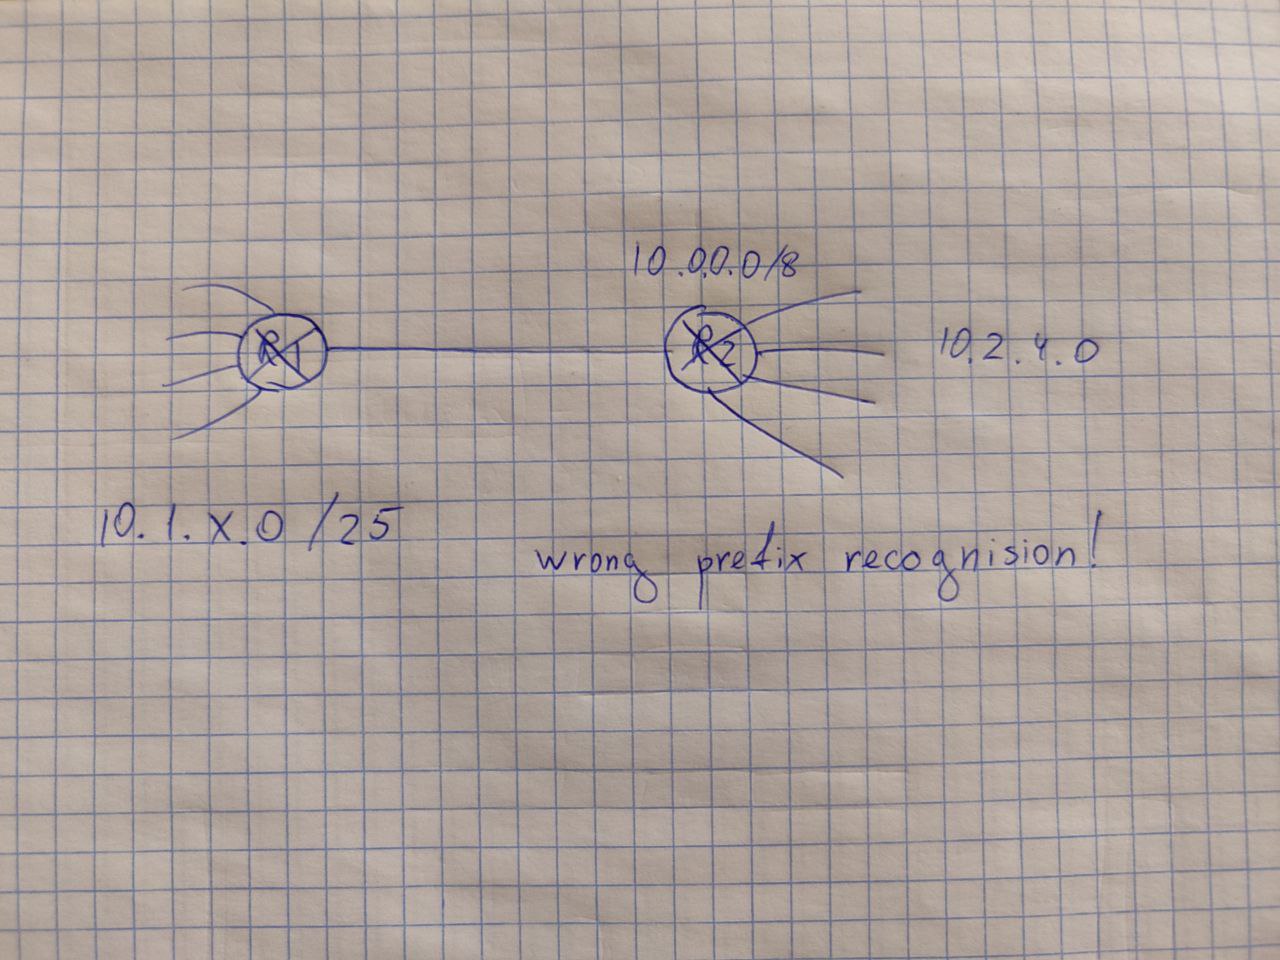 10.0.0.0/8
R1
R2
10.2.4.0
10.1.x.0/25
wrong prefix recognision!